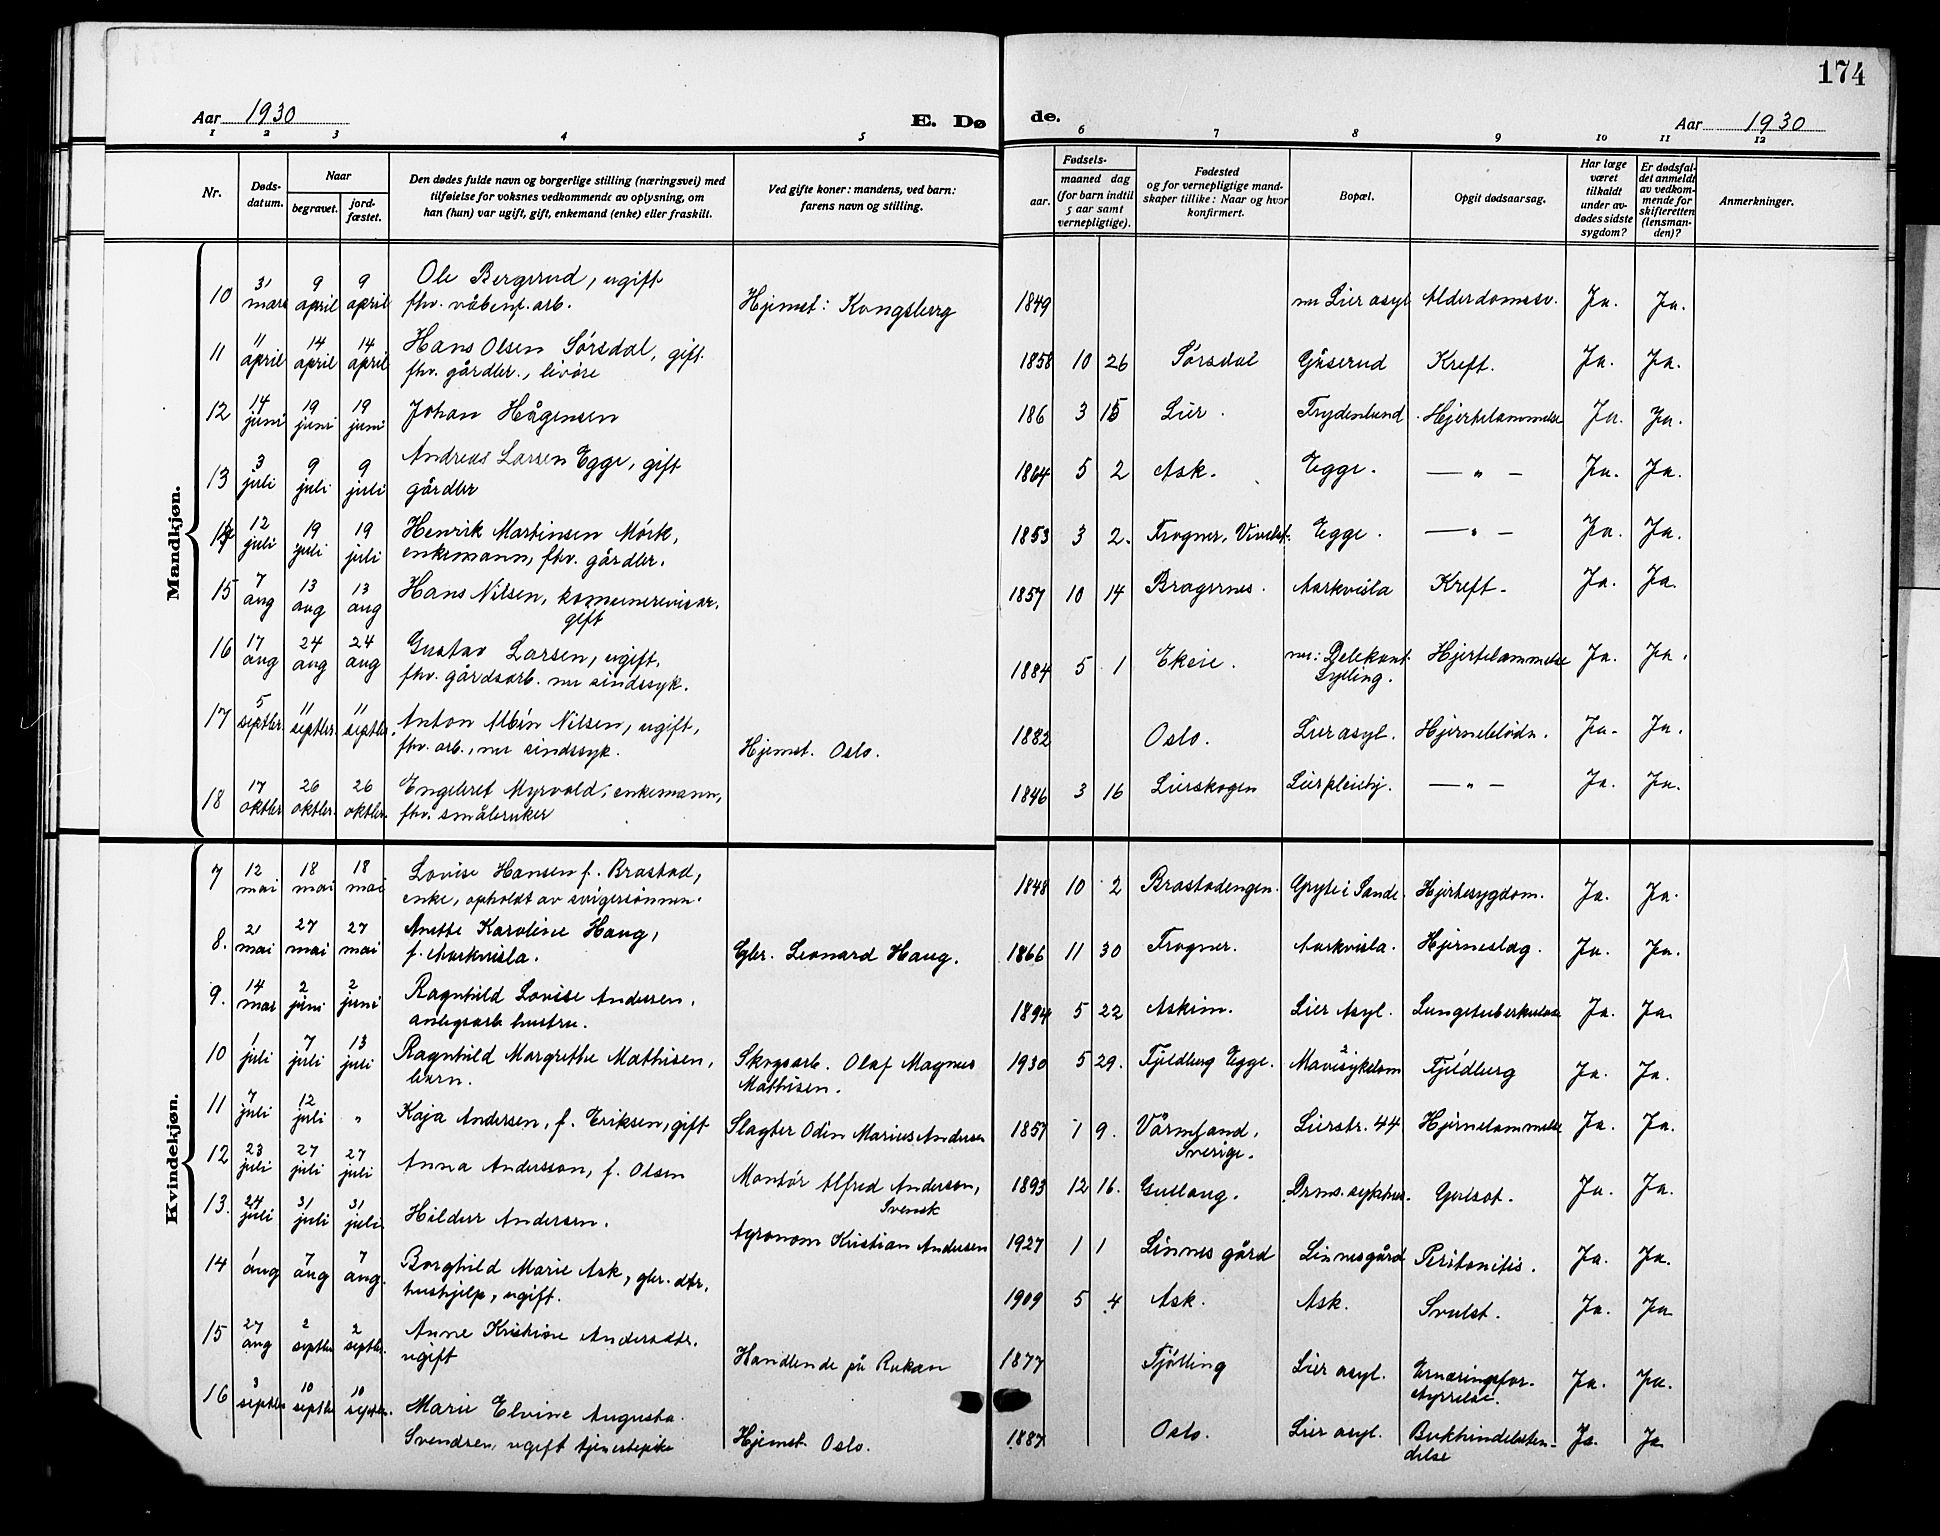 174
Aar 1930
E. Dø
de.
Aar 1930
1 2 3 4 5 6 7 8 9 10 11 12
Nr.
Døds-
datum.
Naar
begravet.
jord-
fæstet.
Den dødes fulde navn og borgerlige stilling (næringsvei) med
tilføielse for voksnes vedkommende av oplysning, om
han (hun) var ugift, gift, enkemand (enke) eller fraskilt.
Ved gifte koner: mandens, ved barn:
farens navn og stilling.
Fødsels-
aar.
maaned dag
(for barn indtil
5 aar samt
vernepligtige).
Fødested
og for vernepligtige mand-
skaper tillike: Naar og hvor
konfirmert.
Bopæl.
Opgit dødsaarsag.
Har læge
været
tilkaldt
under av-
dødes sidste
sygdom?
Er dødsfal-
det anmeldt
av vedkom-
mende for
skifteretten
(lensman-
den)?
Anmerkninger.
Mandkjøn.
10 31 mars 9 april 9 april Ole Bergerud, ugift
fhv. våbenf. arb. Hjemst: Kongsberg 1849 nu Lier asyl Alderdomssv. Ja. Ja.
11 11 april 14 april 14 april Hans Olsen Sørsdal, gift.
fhv. gårdbr., livøre 1858 10 26 Sørsdal Gåserud Kreft. Ja. Ja.
12 14 juni 19 juni 19 juni Johan Hågensen 186 3 15 Lier. Frydenlund Hjertelammelse Ja. Ja.
13 3 juli 9 juli 9 juli Andreas Larsen Egge, gift
gårdbr 1864 5 2 Ask. Egge. — " — Ja. Ja.
14 12 juli 19 juli 19 juli Henrik Martinsen Mörk,
enkemann, fhv. gårdbr. 1853 3 2. Frogner, Vivelst. Egge. — " — Ja. Ja.
15 7 aug 13 aug 13 aug Hans Nilsen, komunerevisor.
gift 1857 10 14 Bragernes. Aarkvisla Kreft. Ja. Ja.
16 17 aug 24 aug 24 aug Gustav Larsen, ugift,
fhv. gårdsarb. nu sindssyk. 1884 5 1 Ekeie. nu: Sylling. Hjertelammelse Ja. Ja.
17 5 septbr. 11 septbr. 11 septbr. Anton Albin Nilsen, ugift,
fhv. arb., nu sindssyk. Hjemst. Oslo. 1882 Oslo. Lier asyl. Hjerneblödn. Ja. Ja.
18 17 oktbr 26 oktbr. 26 oktbr. Engebret Myrvold, enkemann,
fhv. småbruker 1846 3 16 Lierskogen Lier pleiehj. — " — Ja. Ja.
Kvindekjøn.
7 12 mai 18 mai 18 mai Lovise Hansen f. Brastad,
enke, opholdt av svigersönnen. 1848 10 2 Brastadengen. Gryte i Sande. Hjertesygdom. Ja. Ja.
8. 21 mai 27 mai 27 mai Anette Karoline Haug,
f. Aarkvisla. Gbr. Leonard Haug. 1866 11 30 Frogner. Aarkvisla. Hjerneslag. Ja. Ja.
9. 14 mar 2 juni 2 juni Ragnhild Lovise Andersen.
anlegsarb. hustru. 1894 5 22 Askim. Lier Asyl. Lungetuberkulose Ja. Ja.
10 1 juli 7 juli 13 juli Ragnhild Margrethe Mathisen,
barn. Skogsarb. Olaf Magnus
Mathisen. 1930 5 29. Fjeldberg Egge. Fjeldberg Ja. Ja.
11 7 juli 12 juli " Kaja Andersen, f. Eriksen, gift Slagter Odin Marius Andersen 1857 1 9. Värmland,
Sverige. Lierstr. 44 Hjernelammelse Ja. Ja.
12 23 juli 27 juli 27 juli Anna Andersson, f. Olsen Montör Alfred Anderson,
Svensk 1893 12 16. Gullaug. Drms. sykehus. Gulsot. Ja. Ja.
13. 27 juli 31 juli 31 juli Hildur Andersen. Agronom Kristian Andersen 1927 1 1 Linnes gård Linnesgård Peritonitis. Ja. Ja.
14 1 aug 7 aug 7 aug. Borghild Marie Ask, gbr. dtr.
hushjelp, ugift. 1909 5 4 Ask. Ask. Svulst. Ja. Ja
15 27 aug 2 septbr 2 septbr. Anne Kristine Andersdtr.
ugift Handlende på Rukan 1877 Fjölling Lier asyl. Ernæringsfor-
styrrelse. Ja. Ja.
16 3 septbr 10 septbr 10 septbr. Marie Elvine Augusta
Svendsen, ugift tjenestepike Hjemst. Oslo. 1887 Oslo. Lier asyl. Bukhindebeten-
delse Ja. Ja